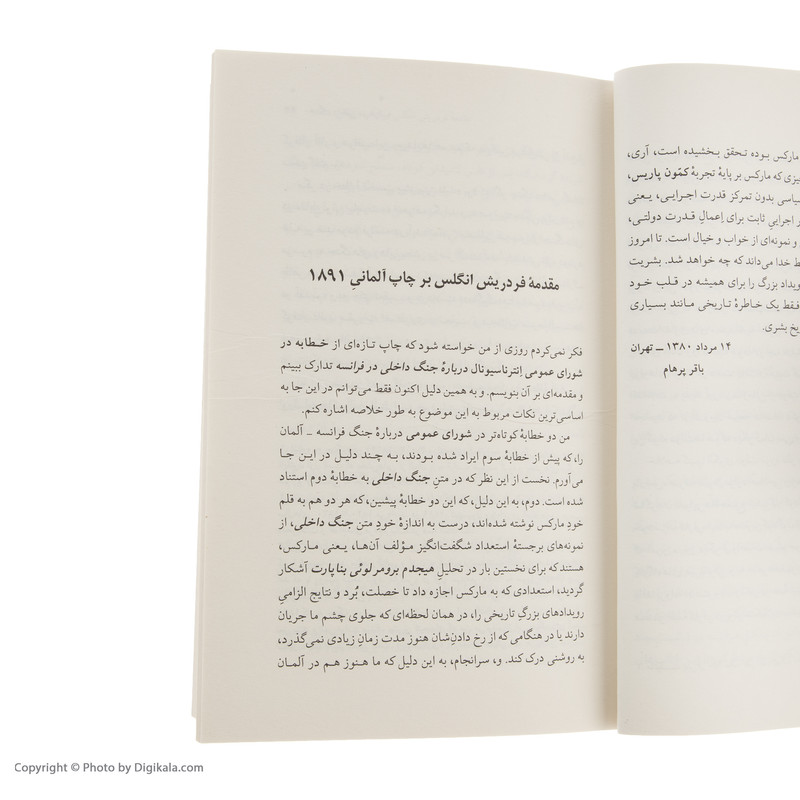 مارکس بوده تحقق بخشیده است، آری،
که مارکس بر پایهٔ تجربهٔ کمّون پاریس،
بدون تمرکز قدرت اجرایی، یعنی
اجراییِ ثابت برای اِعمالِ قدرت دولتی،
و نمونه‌ای از خواب و خیال است. تا امروز
خدا می‌داند که چه خواهد شد. بشریت
بزرگ را برای همیشه در قلب خود
فقط یک خاطرهٔ تاریخی مانند بسیاری
بشری.
۱۴ مرداد ۱۳۸۰ ــ تهران
باقر پرهام
مقدمهٔ فردریش انگلس بر چاپ آلمانیِ ۱۸۹۱
فکر نمی‌کردم روزی از من خواسته شود که چاپ تازه‌ای از خطابه در
شورای عمومی اِنترناسیونال دربارهٔ جنگ داخلی در فرانسه تدارک ببینم
و مقدمه‌ای بر آن بنویسم. و به همین دلیل اکنون فقط می‌توانم در این جا به
اساسی‌ترین نکات مربوط به این موضوع به طور خلاصه اشاره کنم.
من دو خطابهٔ کوتاه‌تر در شورای عمومی دربارهٔ جنگ فرانسه ــ آلمان
را، که پیش از خطابهٔ سوم ایراد شده بودند، به چند دلیل در این جا
می‌آورم. نخست از این نظر که در متنِ جنگ داخلی به خطابهٔ دوم استناد
شده است. دوم، به این دلیل، که این دو خطابهٔ پیشین، که هر دو هم به قلم
خودِ مارکس نوشته شده‌اند، درست به اندازهٔ خودِ متن جنگ داخلی، از
نمونه‌های برجستهٔ استعداد شگفت‌انگیز مؤلف آن‌ها، یعنی مارکس،
هستند که برای نخستین بار در تحلیلِ هیجدم برومر لوئی بناپارت آشکار
گردید، استعدادی که به مارکس اجازه داد تا خصلت، بُرد و نتایج الزامیِ
رویدادهای بزرگِ تاریخی را، در همان لحظه‌ای که جلوی چشم ما جریان
دارند یا در هنگامی که از رخ دادن‌شان هنوز مدت زمانِ زیادی نمی‌گذرد،
به روشنی درک کند. و، سرانجام، به این دلیل که ما هنوز هم در آلمان
Copyright © Photo by Digikala.com